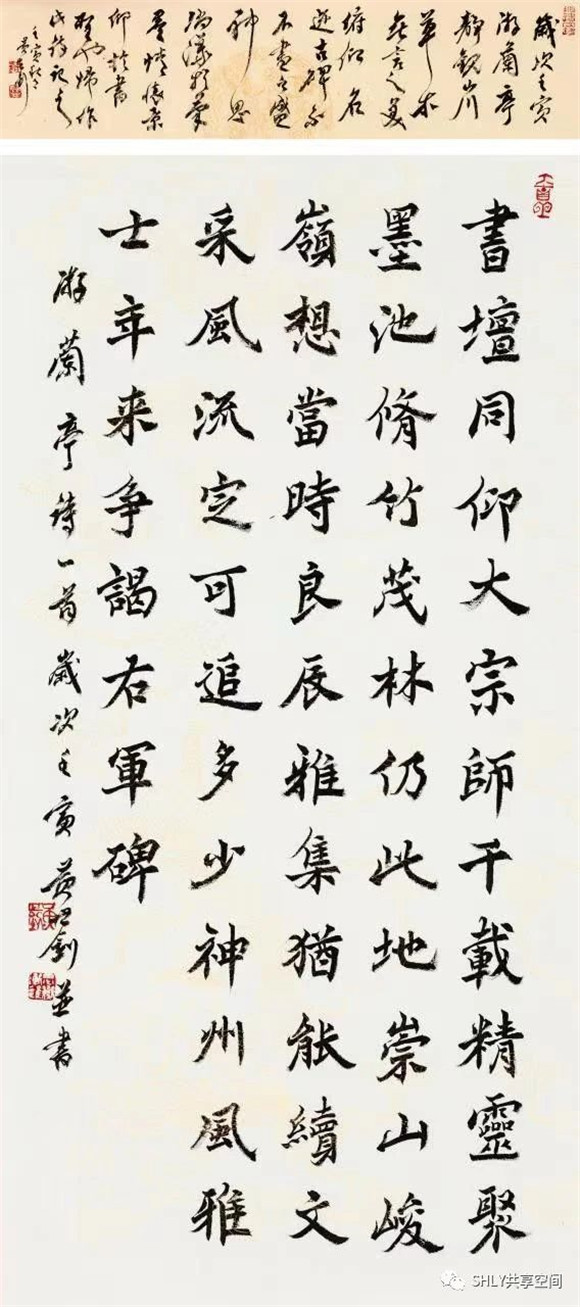 歲次壬寅
游蘭亭
靜觀山川
草木
無言之美
俯仰名
迹古碑
神思
仰於書
聖 歸作
此詩記之
壬寅
書壇同仰大宗師千載精靈聚
墨池脩竹茂林仍此地崇山峻
嶺想當時良辰雅集猶能續文
采風流定可追多少神州風雅
士年来争謁右軍碑
游蘭亭詩一首歲次壬寅黄 劍並書
SHLY共享空间